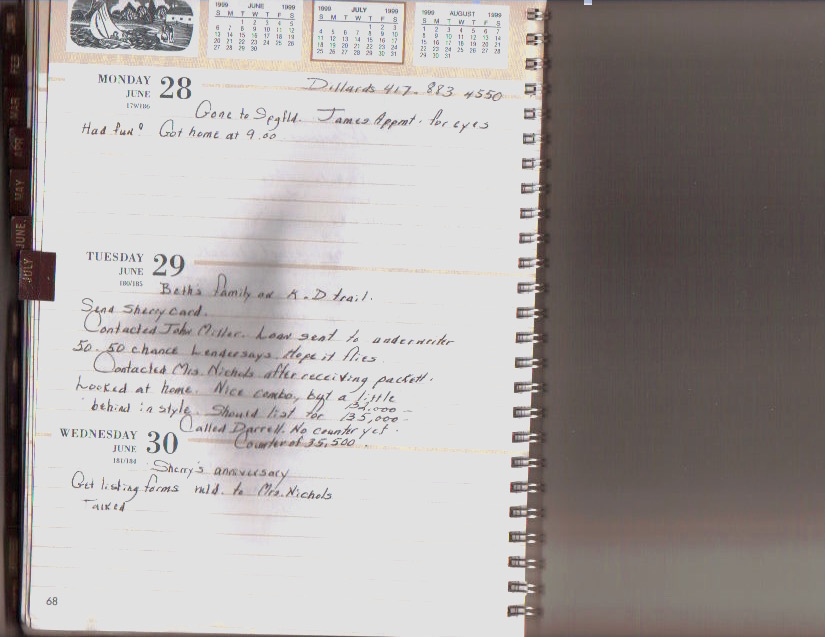 1999 JUNE 1999
S M T W T F S
1 2 3 4 5
6 7 8 9 10 11 12
13 14 15 16 17 18 19
20 21 22 23 24 25 26
27 28 29 30
1999 JULY 1999
S M T W T F S
1 2 3
4 5 6 7 8 9 10
11 12 13 14 15 16 17
18 19 20 21 22 23 24
25 26 27 28 29 30 31
1999 AUGUST 1999
S M T W T F S
1 2 3 4 5 6 7
8 9 10 11 12 13 14
15 16 17 18 19 20 21
22 23 24 25 26 27 28
29 30 31
MONDAY 28
JUNE
179/186
Dillards 417. 883 4550
Gone to Spgfld. James Appmt. for eyes
Had fun! Got home at 9.00
TUESDAY 29
JUNE
180/185
Beth's family on K.D trail.
Send Sherry card.
Contacted John Miller. Loan sent to underwriter
50-50 chance Lender says. Hope it flies.
Contacted Mrs. Nichols after receiving packett.
Looked at home. Nice combo, but a little
behind in style. Should list for 132,000 -
135,000 -
Called Darrell. No counter yet.
Counter of 35,500.
WEDNESDAY 30
JUNE
181/184
Sherry's anniversary
Get listing forms mld. to Mrs. Nichols
Talked
68
FEB
MAR
APR
MAY
JUNE
JULY